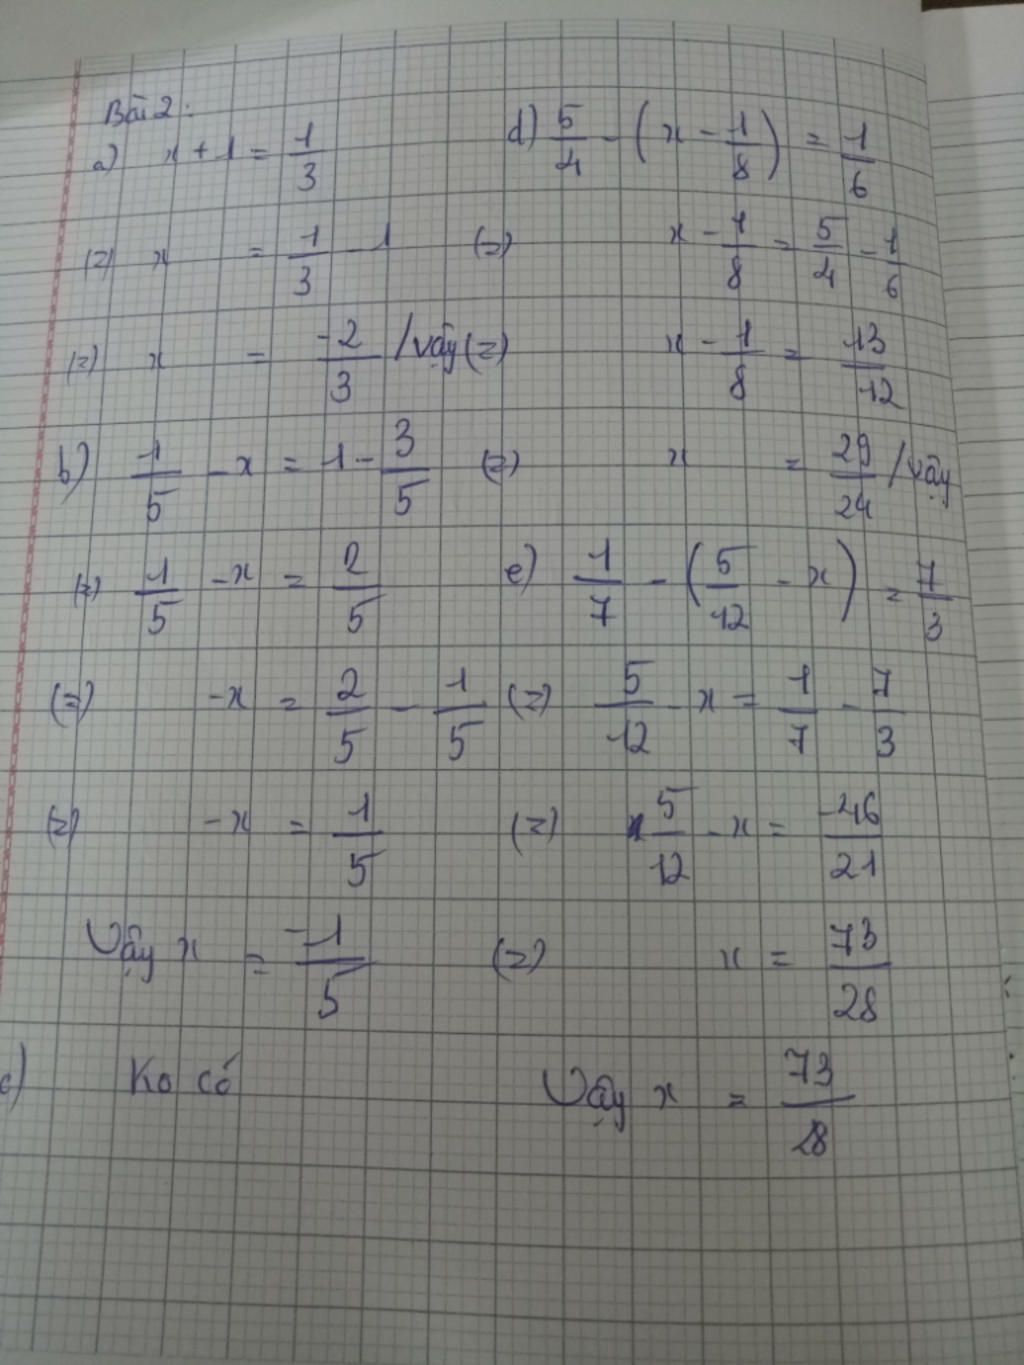 Bài 2:
a) x + 1 = 1/3
(=) x = 1/3 - 1
(=) x = -2/3 /vậy
b) 1/5 - x = 1 - 3/5
(=) 1/5 - x = 2/5
(=) -x = 2/5 - 1/5
(=) -x = 1/5
Vậy x = -1/5
c) Ko có
d) 5/4 - (x - 1/8) = 1/6
(=) x - 1/8 = 5/4 - 1/6
(=) x - 1/8 = 13/12
(=) x = 29/24 /vậy
e) 1/7 - (5/12 - x) = 7/3
(=) 5/12 - x = 1/7 - 7/3
(=) 5/12 - x = -46/21
(=) x = 73/28
Vậy x = 73/28